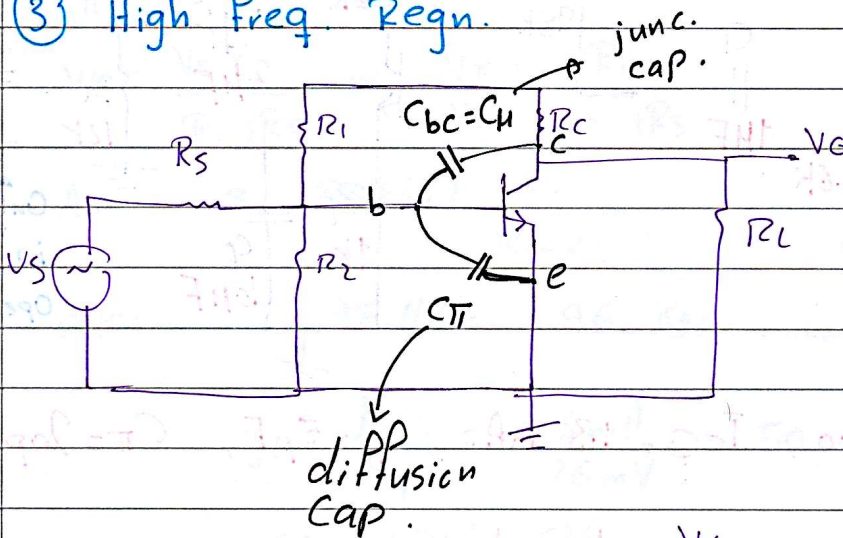 (3) High Freq. Regn.
junc.
cap.
R1
Cbc = Cμ
RC
C
Rs
Vo
b
RL
Vs
R2
e
Cπ
diffusion
cap.